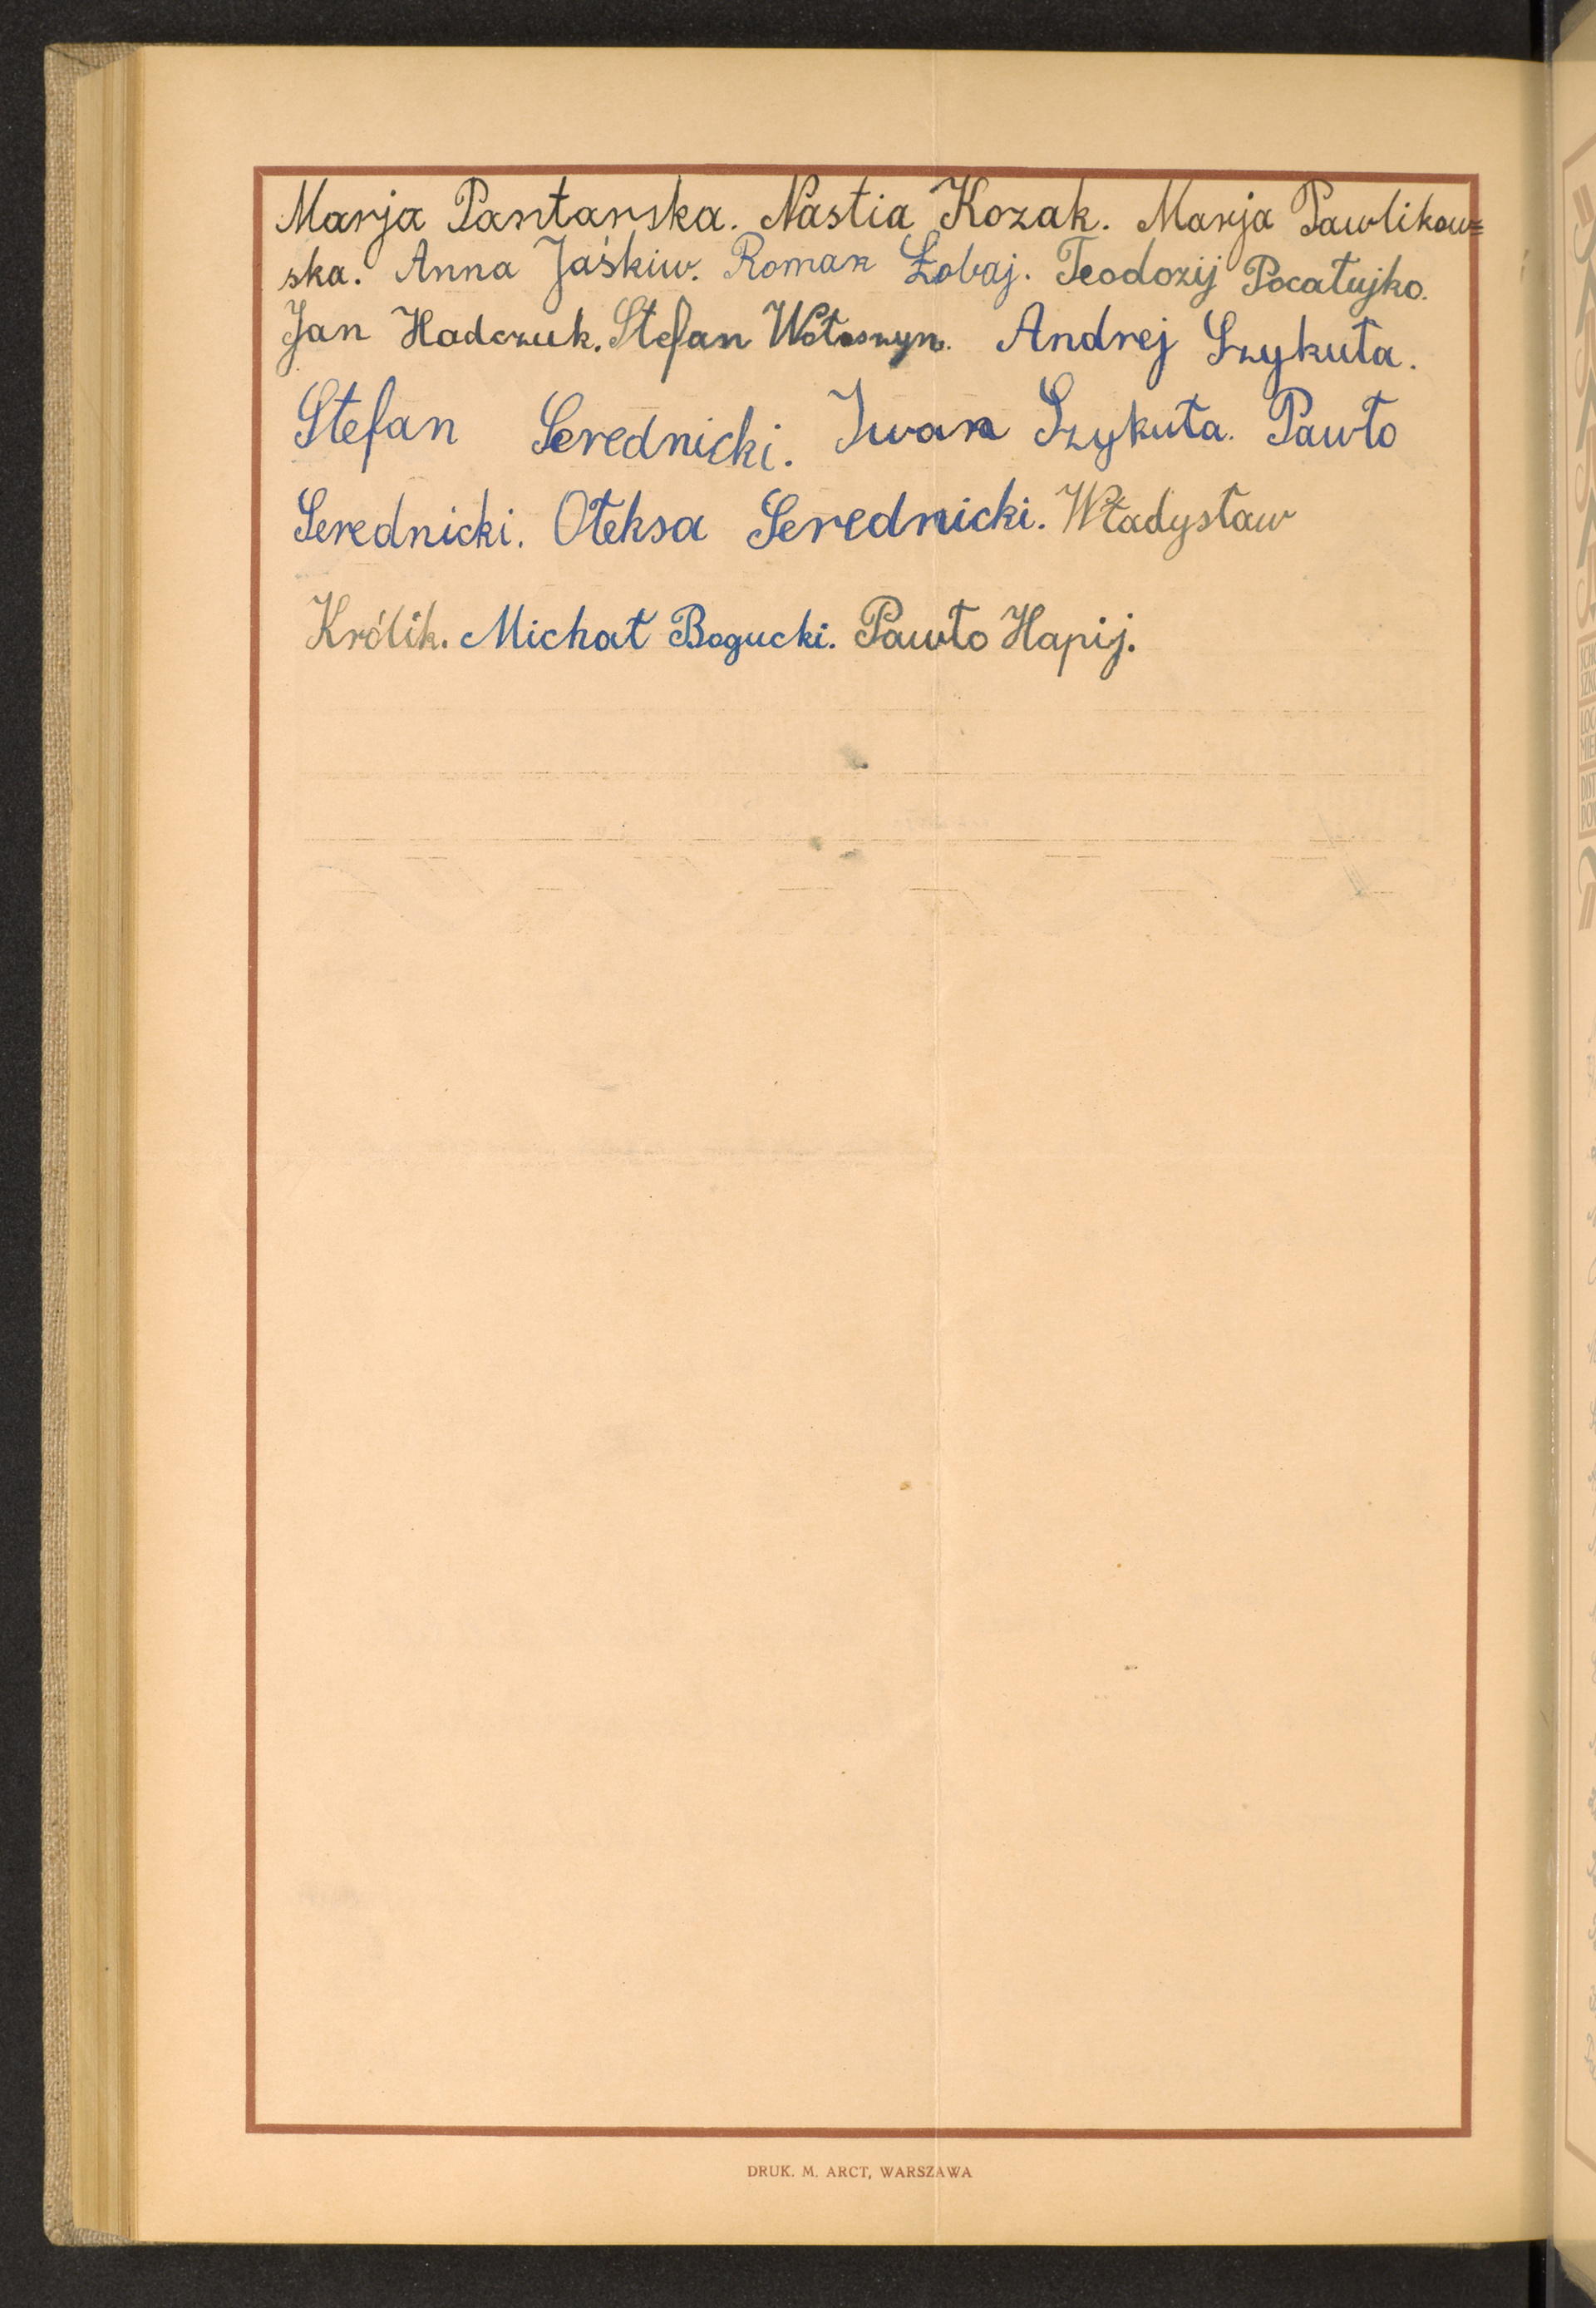 Marja Pantarska. Nastia Kozak. Marja Pawlikow=
ska. Anna Jaśkiw. Roman Łobaj. Teodozij Pocałujko.
Jan Hadczuk. Stefan Wołoszyn. Andrej Szykuła.
Stefan Serednicki. Iwan Szykuła. Pawło
Serednicki. Ołeksa Serednicki. Władysław
Królik. Michał Bogucki. Pawło Hapij.
DRUK. M. ARCT, WARSZAWA